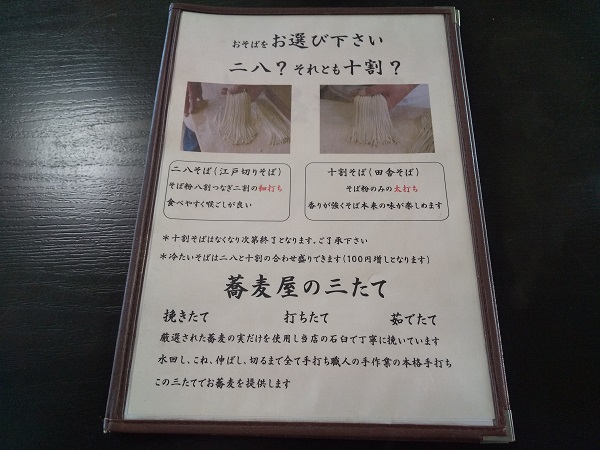 おそばをお選び下さい
二八？それとも十割？
二八そば(江戸切りそば)
そば粉八割つなぎ二割の細打ち
食べやすく喉ごしが良い
十割そば(田舎そば)
そば粉のみの太打ち
香りが強くそば本来の味が楽しめます
＊十割そばはなくなり次第終了となります、ご了承下さい
＊冷たいそばは二八と十割の合わせ盛りできます(100円増しとなります)
蕎麦屋の三たて
挽きたて 打ちたて 茹でたて
厳選された蕎麦の実だけを使用し当店の石臼で丁寧に挽いています
水回し、こね、伸ばし、切るまで全て手打ち職人の手作業の本格手打ち
この三たてでお蕎麦を提供します